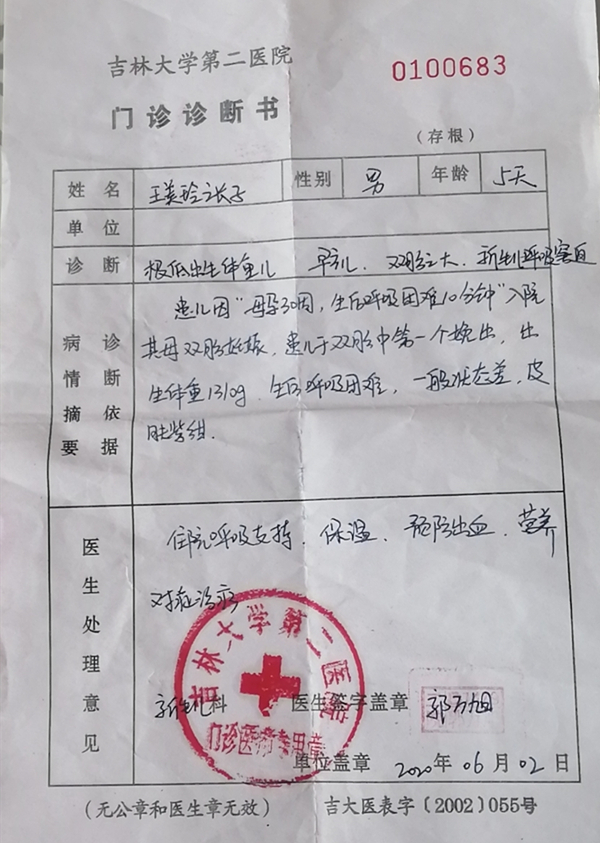 吉林大学第二医院
0100683
门诊诊断书
(存根)
姓名 王美玲之长子 性别 男 年龄 5天
单位
诊断 极低出生体重儿 早产儿、双胎之大、新生儿呼吸窘迫
病情摘要 诊断依据
患儿因“母孕30周,生后呼吸困难10分钟”入院
其母双胎妊娠,患儿于双胎中第一个娩出,出
生体重1310g,生后呼吸困难,一般状态差,皮
肤紫绀.
医生处理意见
住院呼吸支持、保温、预防出血、营养
对症治疗
吉林大学第二医院
门诊医疗专用章
新生儿科 医生签字盖章 郭万旭
单位盖章 2020年06月02日
(无公章和医生章无效) 吉大医表字〔2002〕055号